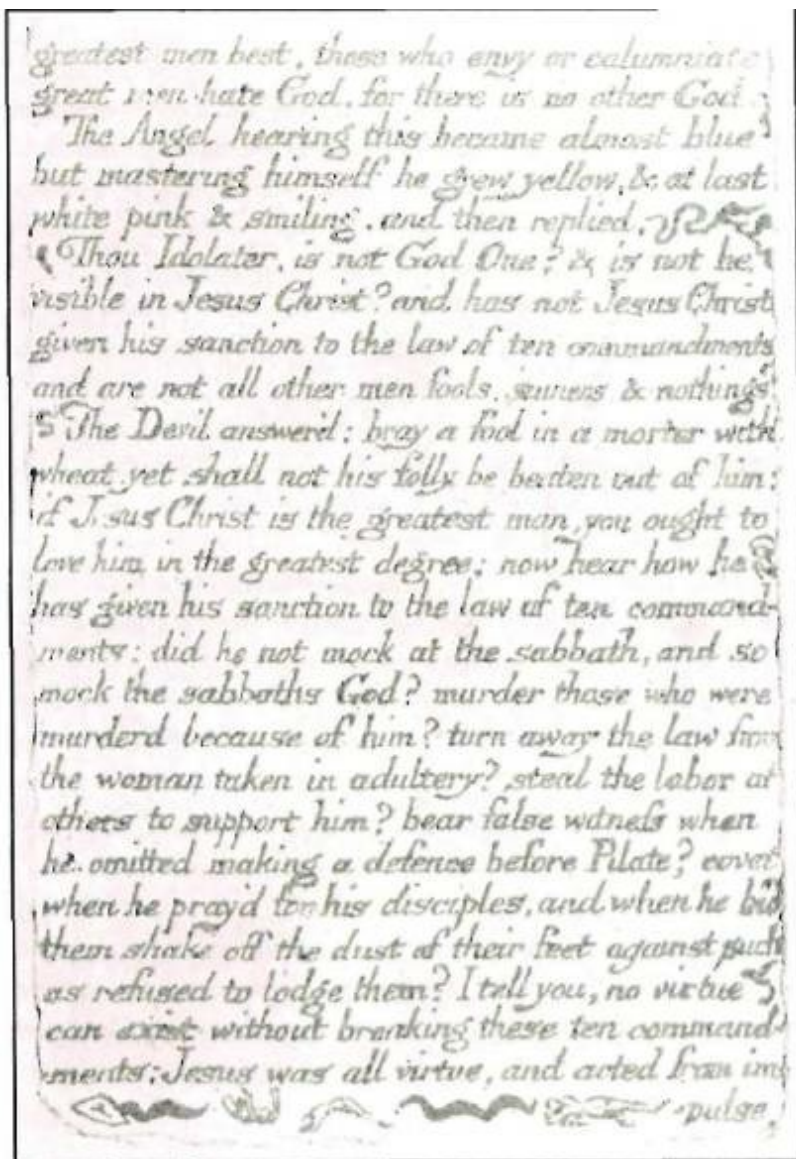 greatest men best, those who envy or calumniate
great men hate God, for there is no other God.
The Angel hearing this became almost blue
but mastering himself he grew yellow, & at last
white pink & smiling, and then replied,
Thou Idolater, is not God One? & is not he
visible in Jesus Christ? and has not Jesus Christ
given his sanction to the law of ten commandments
and are not all other men fools, sinners & nothings
The Devil answerd; bray a fool in a morter with
wheat, yet shall not his folly be beaten out of him;
if Jesus Christ is the greatest man, you ought to
love him in the greatest degree; now hear how he
has given his sanction to the law of ten command-
ments: did he not mock at the sabbath, and so
mock the sabbaths God? murder those who were
murderd because of him? turn away the law from
the woman taken in adultery? steal the labor of
others to support him? bear false witness when
he omitted making a defence before Pilate? covet
when he pray'd for his disciples, and when he bid
them shake off the dust of their feet against such
as refused to lodge them? I tell you, no virtue
can exist without breaking these ten command-
ments: Jesus was all virtue, and acted from im-
pulse,